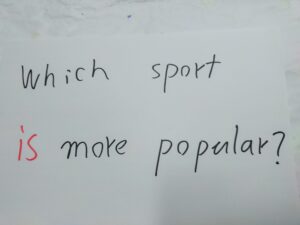 Which sport
is more popular?